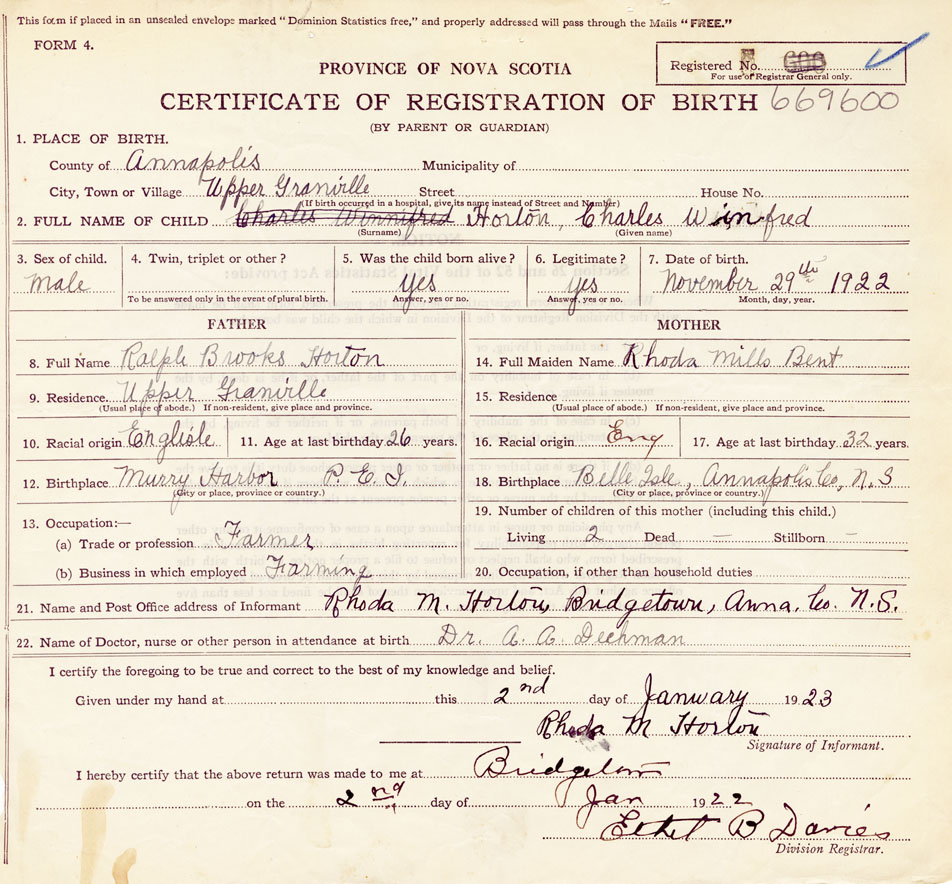 This form if placed in an unsealed envelope marked "Dominion Statistics free," and properly addressed will pass through the Mails "FREE."
FORM 4.
Registered No. 608
For use of Registrar General only.
PROVINCE OF NOVA SCOTIA
CERTIFICATE OF REGISTRATION OF BIRTH 669600
(BY PARENT OR GUARDIAN)
1. PLACE OF BIRTH.
County of Annapolis Municipality of
City, Town or Village Upper Granville Street House No.
(If birth occurred in a hospital, give its name instead of Street and Number)
2. FULL NAME OF CHILD Charles Winnifred Horton, Charles Winifred
(Surname) (Given name)
3. Sex of child. 4. Twin, triplet or other? 5. Was the child born alive? 6. Legitimate? 7. Date of birth.
Male yes yes November 29th 1922
To be answered only in the event of plural birth. Answer, yes or no. Answer, yes or no. Month, day, year.
FATHER MOTHER
8. Full Name Ralph Brooks Horton 14. Full Maiden Name Rhoda Mills Bent
9. Residence Upper Granville 15. Residence
(Usual place of abode.) If non-resident, give place and province. (Usual place of abode.) If non-resident, give place and province.
10. Racial origin English 11. Age at last birthday 26 years. 16. Racial origin Eng 17. Age at last birthday 32 years.
12. Birthplace Murry Harbor P. E. I. 18. Birthplace Belle Isle, Annapolis Co, N. S
(City or place, province or country.) (City or place, province or country.)
13. Occupation:— 19. Number of children of this mother (including this child.)
(a) Trade or profession Farmer Living 2 Dead — Stillborn —
(b) Business in which employed Farming 20. Occupation, if other than household duties
21. Name and Post Office address of Informant Rhoda M. Horton, Bridgetown, Anna. Co. N.S.
22. Name of Doctor, nurse or other person in attendance at birth Dr. A. A. Dechman
I certify the foregoing to be true and correct to the best of my knowledge and belief.
Given under my hand at this 2nd day of January 1923
Rhoda M Horton
Signature of Informant.
I hereby certify that the above return was made to me at Bridgetown
on the 2nd day of Jan 1922
Ethel B Davies
Division Registrar.